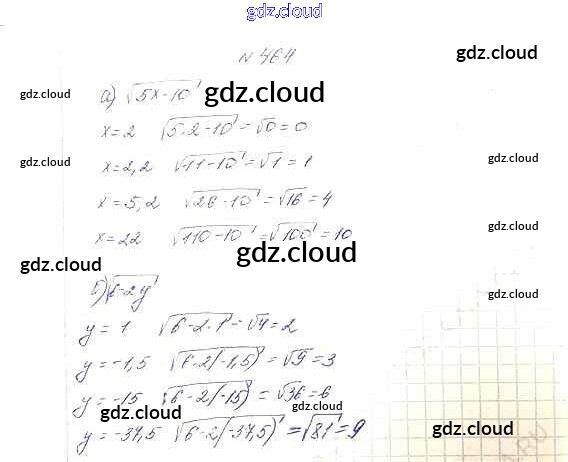 gdz.cloud
N 464
gdz.cloud
gdz.cloud
а) √5x-10
gdz.cloud
x=2 √5·2-10=√0=0
gdz.cloud
gdz.cloud
x=2,2 √11-10=√1=1
x=5,2 √26-10=√16=4
gdz.cloud
x=22 √110-10=√100=10
gdz.cloud
gdz.cloud
б) √6-2y
gdz.cloud
y=1 √6-2·1=√4=2
y=-1,5 √6-2(-1,5)=√9=3
gdz.cloud
y=-15 √6-2(-15)=√36=6
gdz.cloud
gdz.cloud
y=-37,5 √6-2(-37,5)=√81=9
gdz.cloud